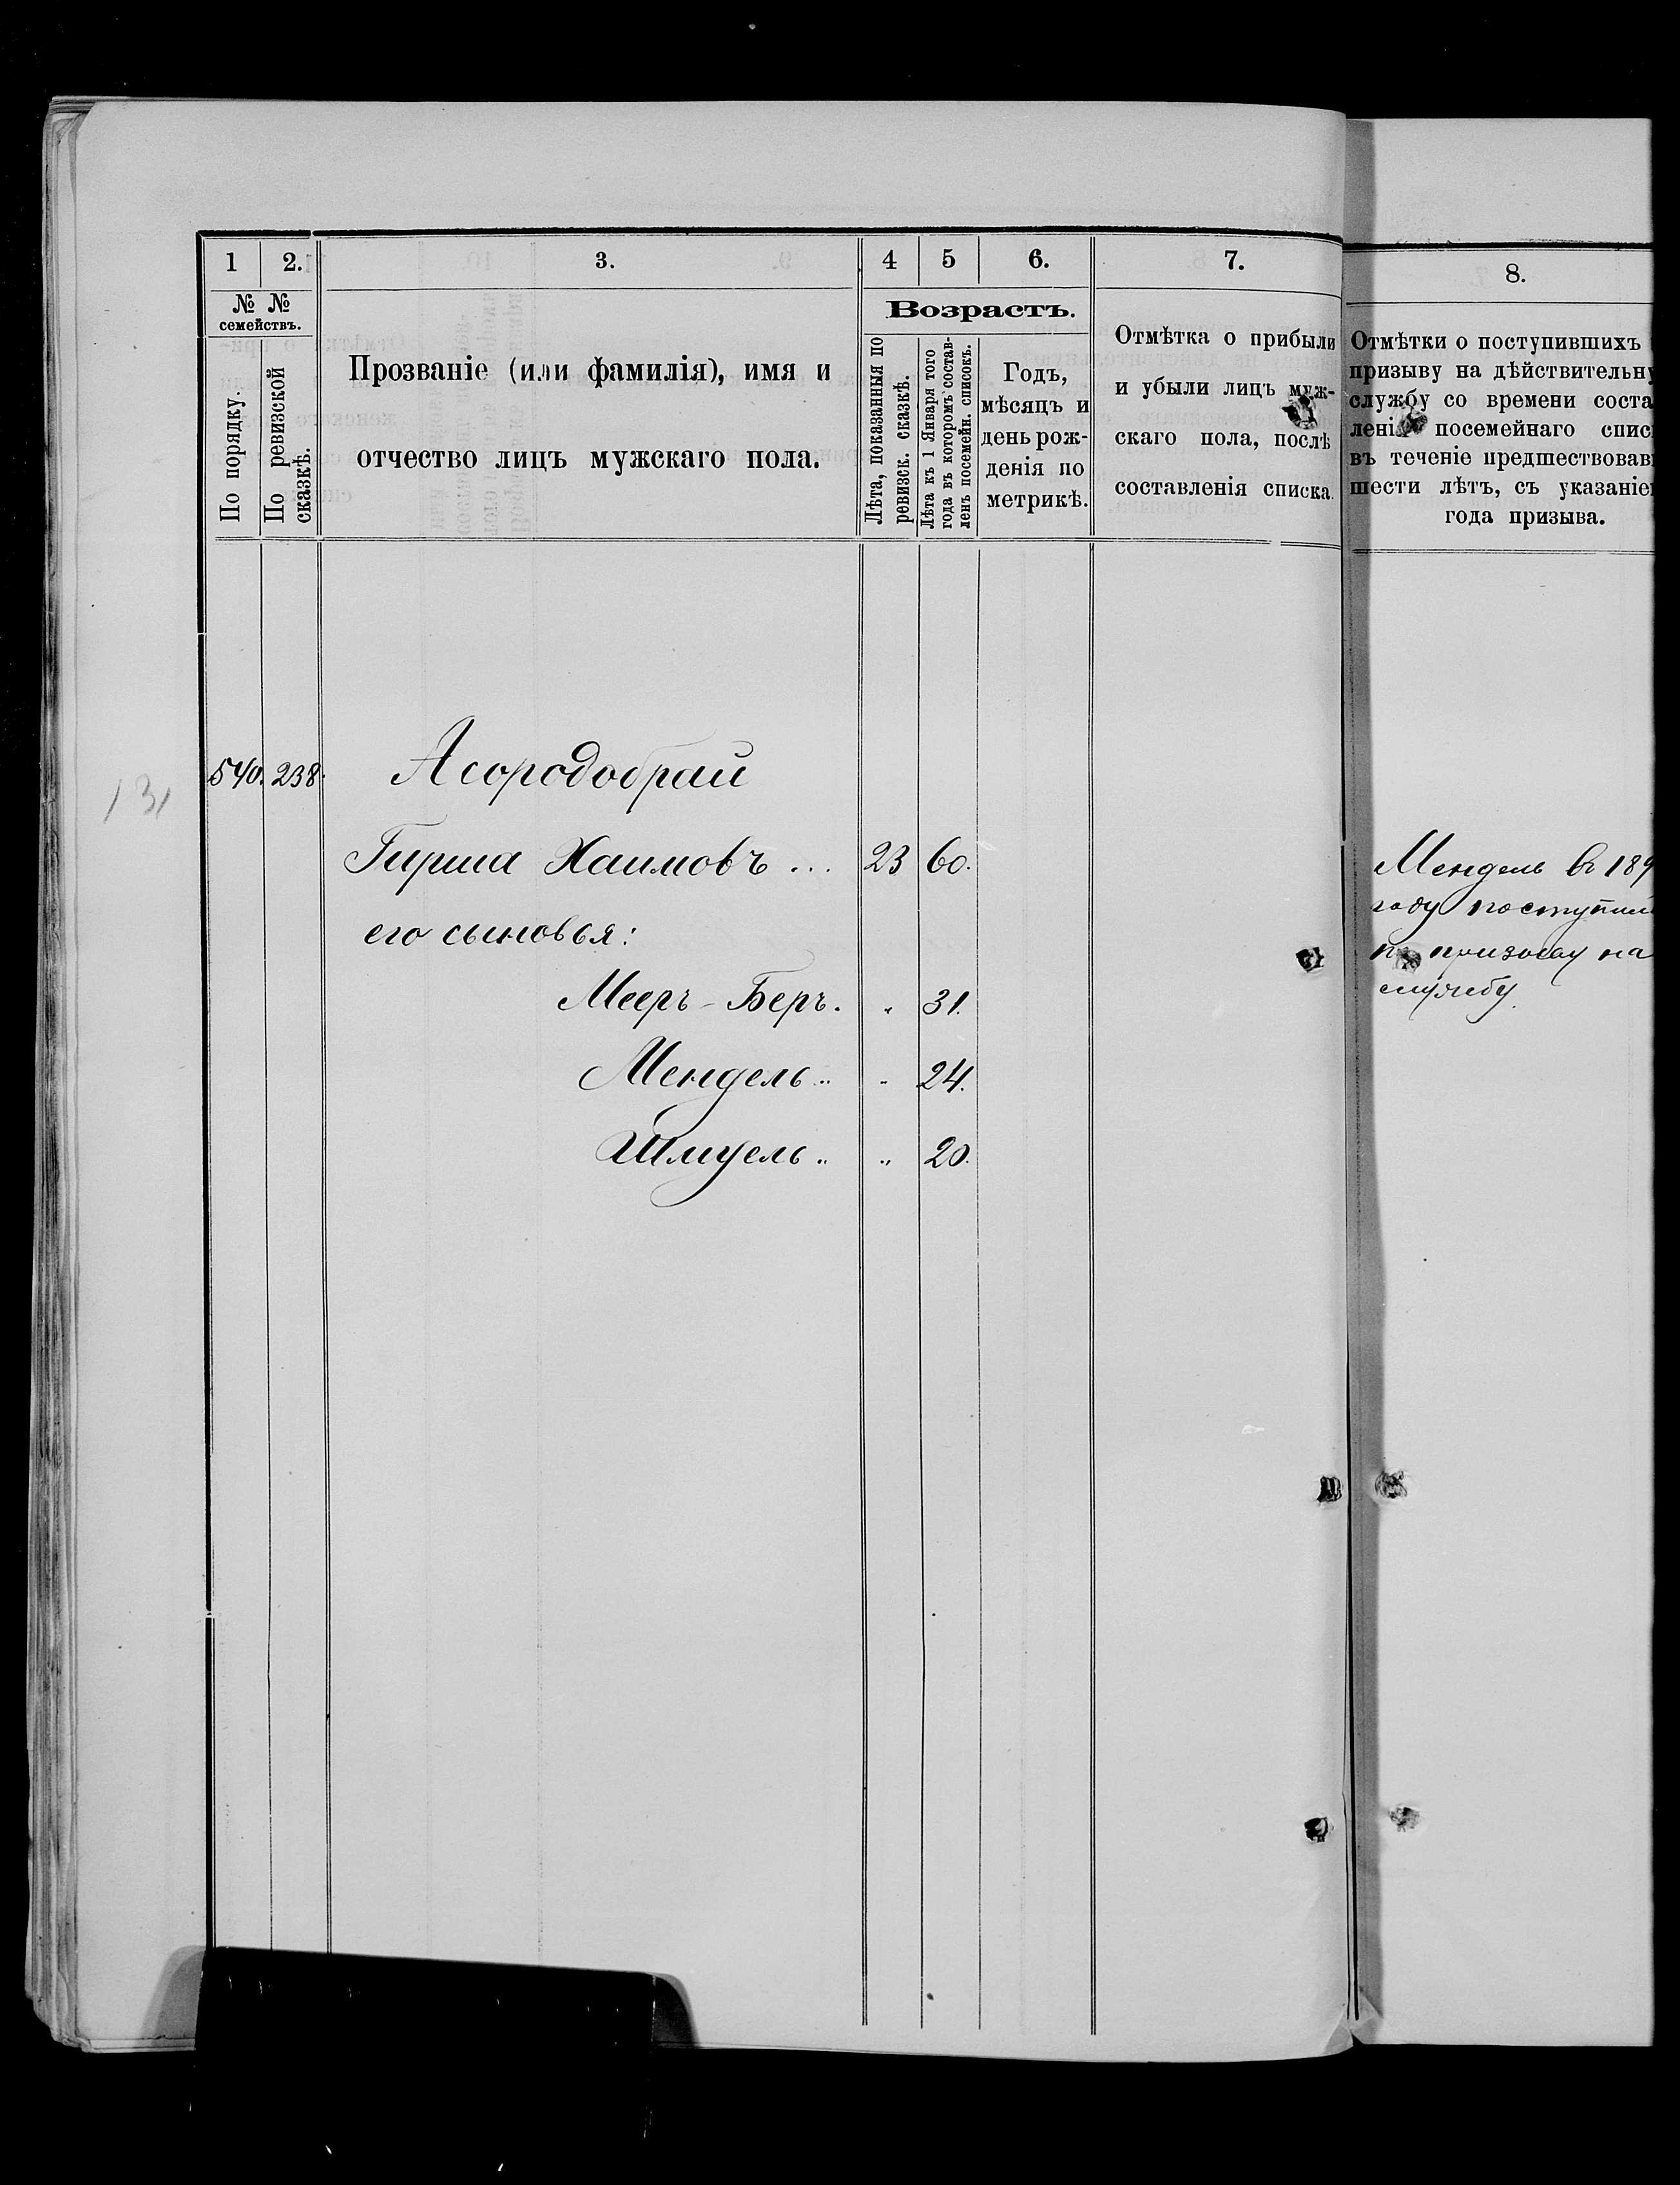 1
2.
3.
4
5
6.
7.
8.
№ №
семействъ.
По порядку.
По ревизской
сказкѣ.
Прозваніе (или фамилія), имя и
отчество лицъ мужскаго пола.
Возрастъ.
Лѣта, показанныя по
ревизск. сказкѣ.
Лѣта къ 1 Января того
года въ которомъ состав-
ленъ посемейн. списокъ.
Годъ,
мѣсяцъ и
день рож-
денія по
метрикѣ.
Отмѣтка о прибыли
и убыли лицъ муж-
скаго пола, послѣ
составленія списка.
Отмѣтки о поступившихъ
призыву на дѣйствительну
службу со времени соста
лені посемейнаго спис
въ теченіе предшествовав
шести лѣтъ, съ указаніе
года призыва.
131
540. 238. Асородобрай
Гирша Хаимовъ ... 23 60.
его сыновья:
Мееръ-Беръ. " 31.
Мендель " " 24.
Шмуель " " 20.
Мендель въ 189
году поступил
по призыву на
службу.